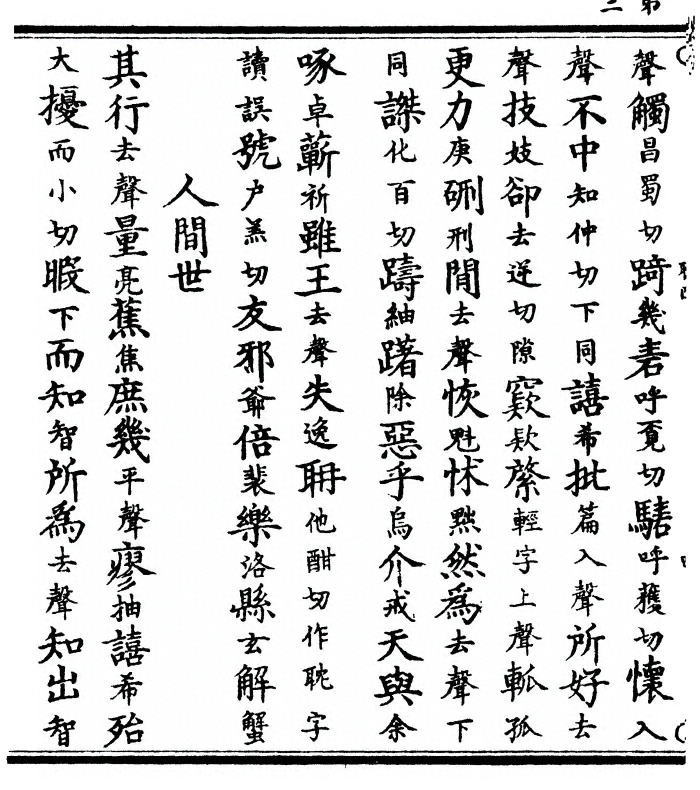 聲觸昌蜀切踦幾砉呼覓切騞呼獲切懷入
聲不中知仲切下同譆希批篇入聲所好去
聲技妓卻去逆切隙窾欵綮輕字上聲軱孤
更力庚硎刑間去聲恢魁怵黜然爲去聲下
同謋化百切躊紬躇除惡乎烏介戒天與余
啄卓蘄祈雖王去聲失逸聃他酣切作耽字
讀誤號戶羔切友邪爺倍裴樂洛縣玄解蟹
人間世
其行去聲量亮蕉焦庶幾平聲瘳抽譆希殆
大擾而小切暇下而知智所爲去聲知出智